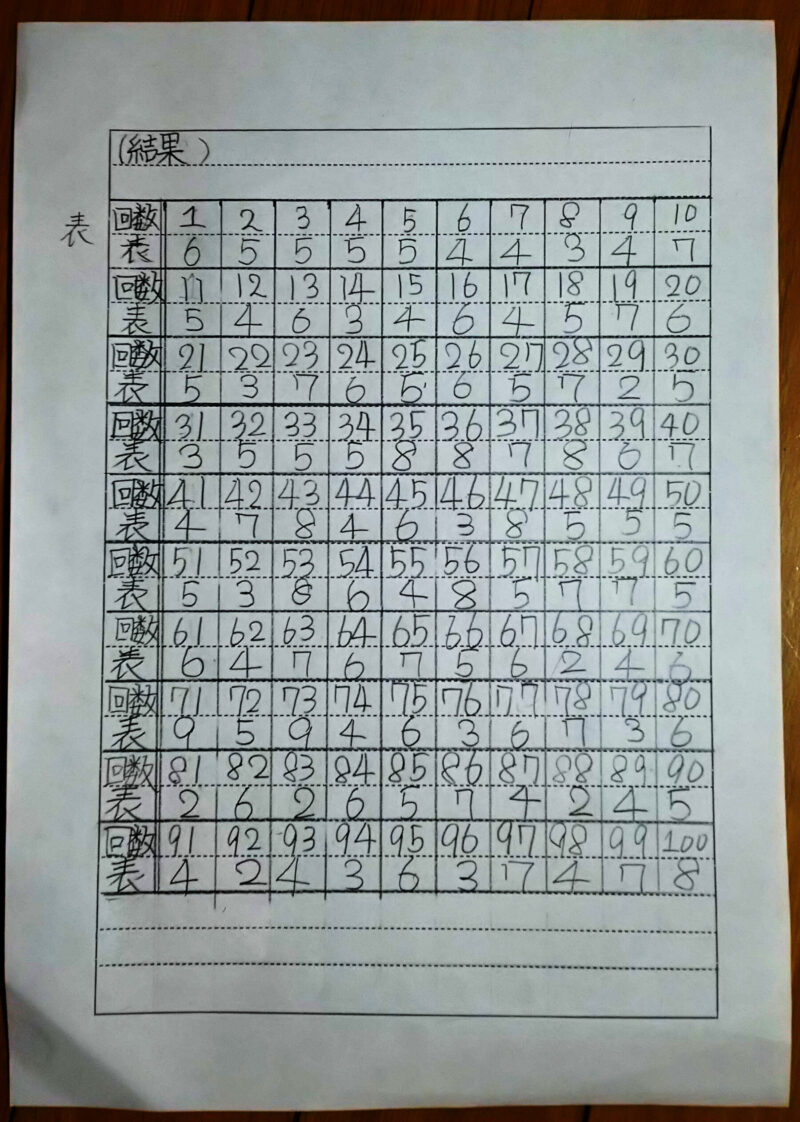 (結果)
表
回数 1 2 3 4 5 6 7 8 9 10
表 6 5 5 5 5 4 4 3 4 7
回数 11 12 13 14 15 16 17 18 19 20
表 5 4 6 3 4 6 4 5 7 6
回数 21 22 23 24 25 26 27 28 29 30
表 5 3 7 6 5 6 5 7 2 5
回数 31 32 33 34 35 36 37 38 39 40
表 3 5 5 5 8 8 7 8 6 7
回数 41 42 43 44 45 46 47 48 49 50
表 4 7 8 4 6 3 8 5 5 5
回数 51 52 53 54 55 56 57 58 59 60
表 5 3 8 6 4 8 5 7 7 5
回数 61 62 63 64 65 66 67 68 69 70
表 6 4 7 6 7 5 6 2 4 6
回数 71 72 73 74 75 76 77 78 79 80
表 9 5 9 4 6 3 6 7 3 6
回数 81 82 83 84 85 86 87 88 89 90
表 2 6 2 6 5 7 4 2 4 5
回数 91 92 93 94 95 96 97 98 99 100
表 4 2 4 3 6 3 7 4 7 8